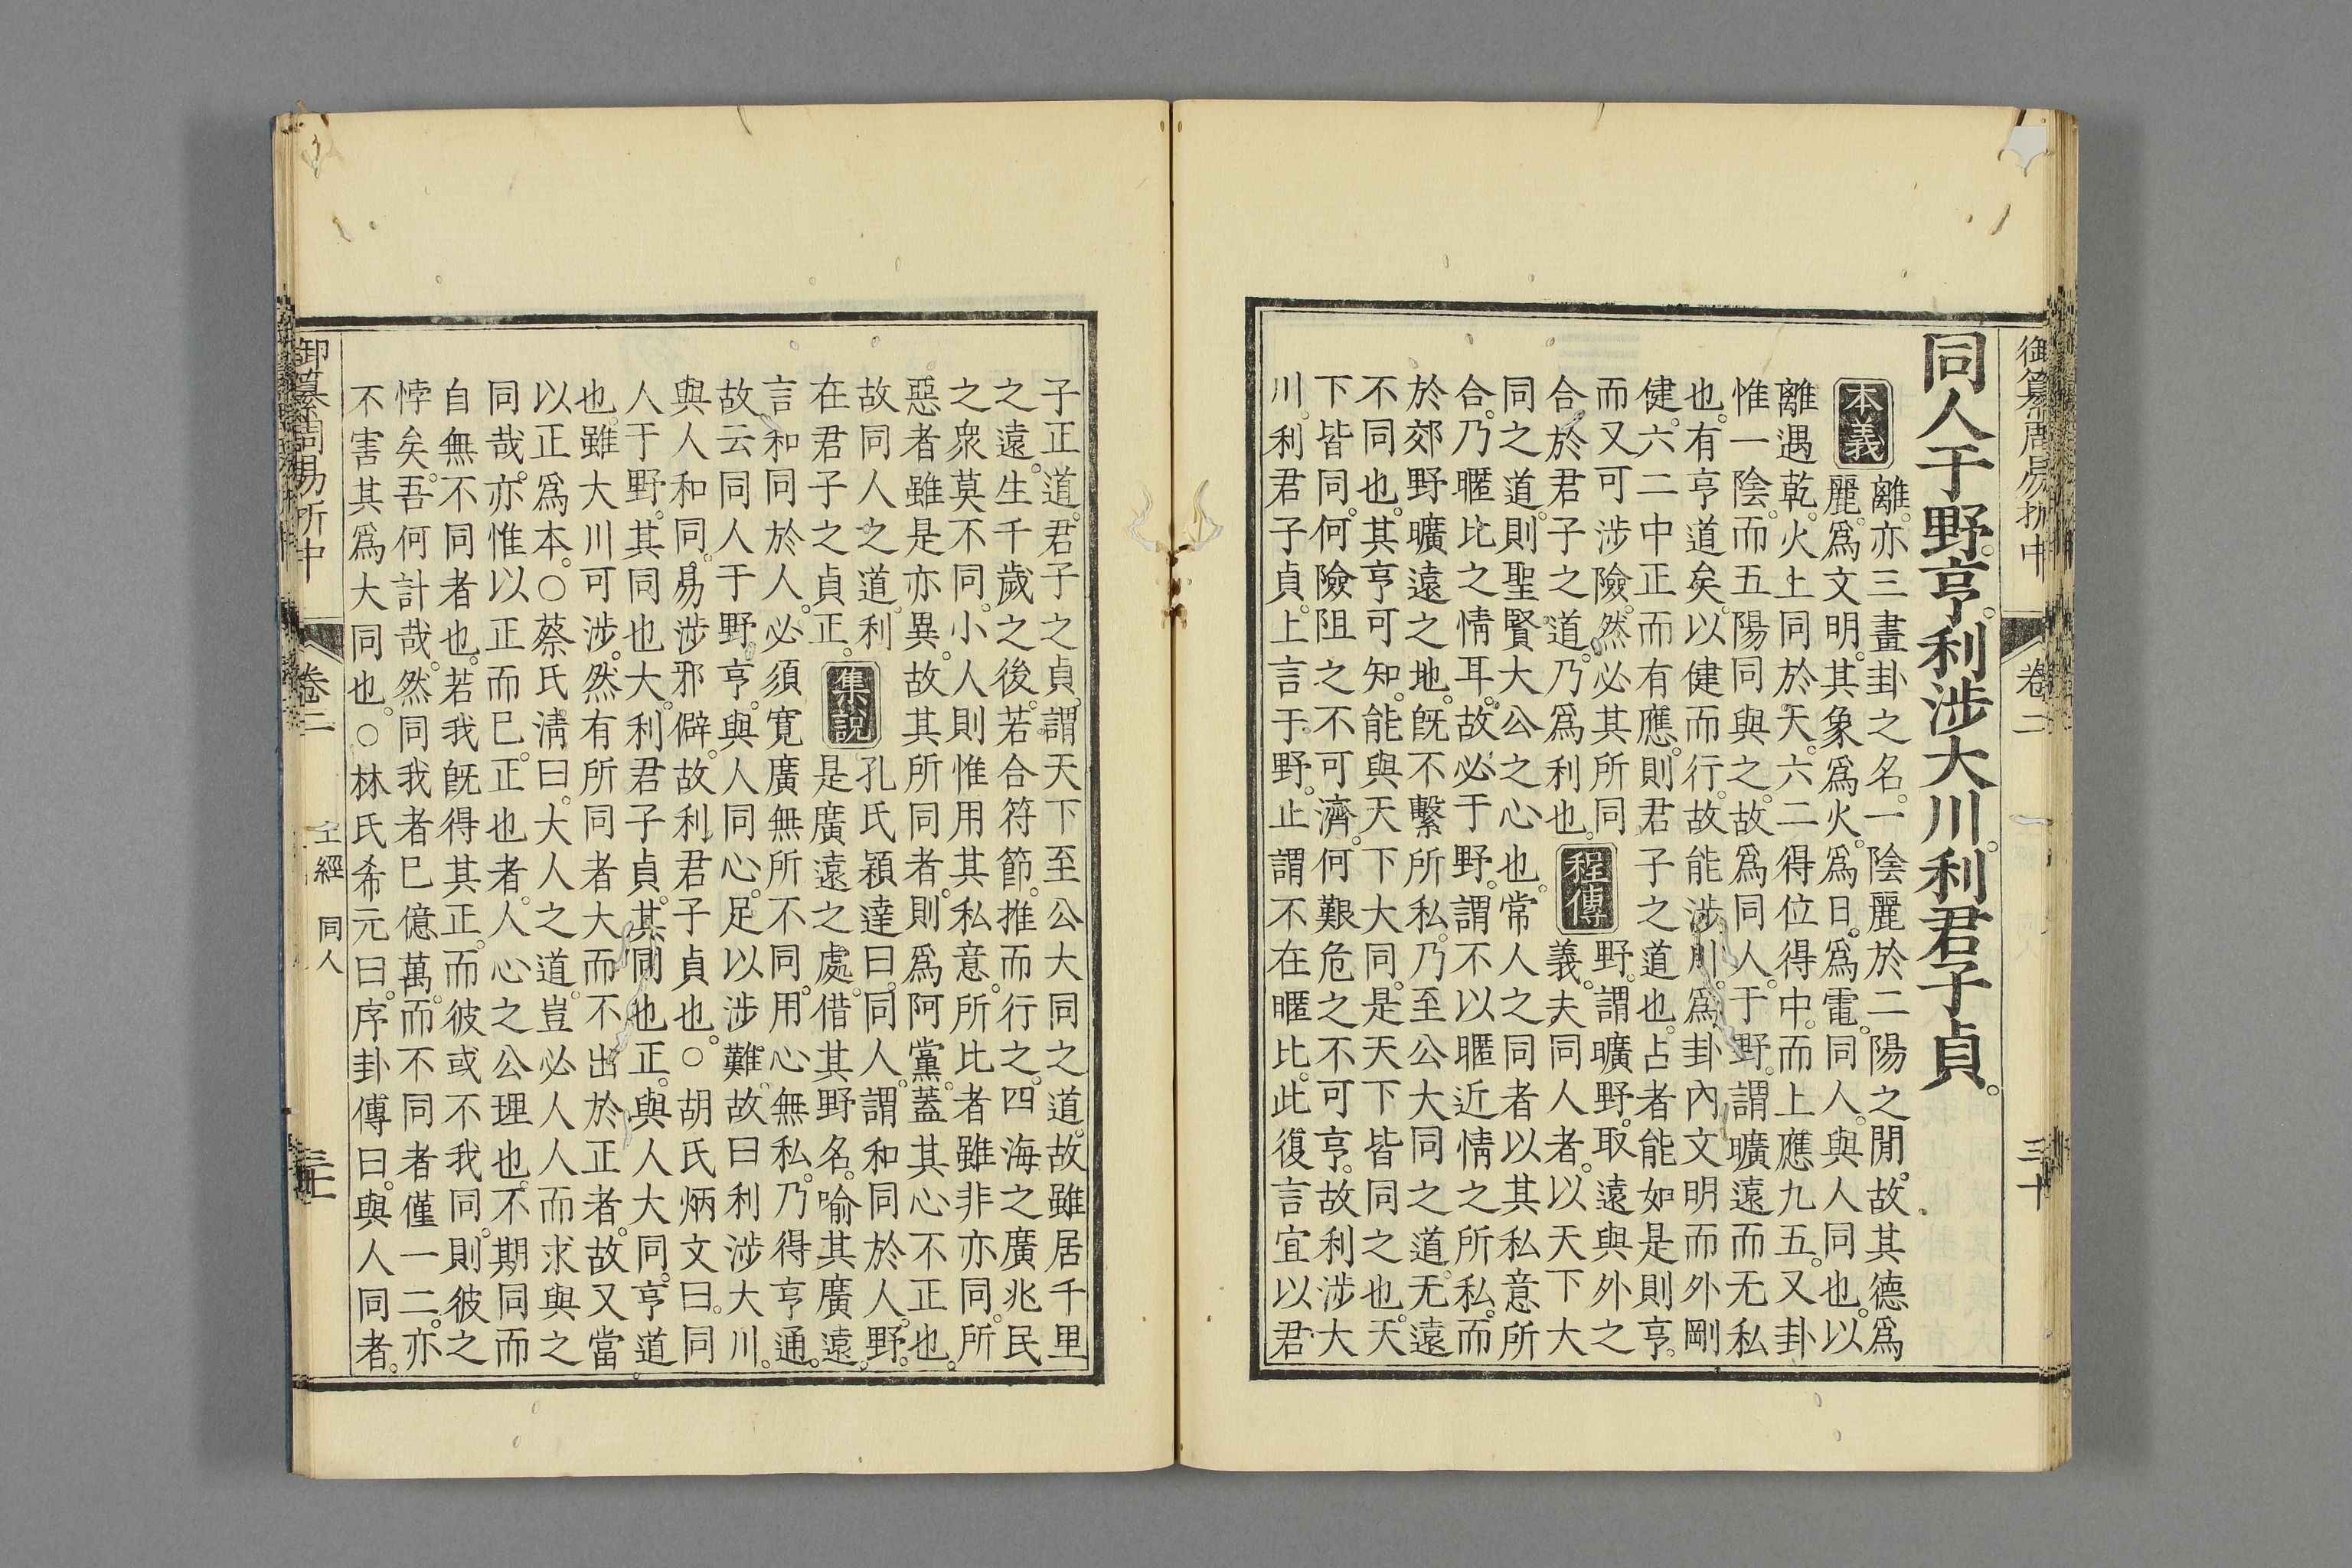 御纂周易折中
卷二
三十
同人于野。亨。利涉大川。利君子貞。
本義
離。亦三畫卦之名。一陰麗於二陽之閒。故其德爲
麗。爲文明。其象爲火。爲日。爲電。同人。與人同也。以
離遇乾。火上同於天。六二得位得中。而上應九五。又卦
惟一陰。而五陽同與之。故爲同人。于野。謂曠遠而无私
也。有亨道矣。以健而行。故能涉川。爲卦內文明而外剛
健。六二中正而有應。則君子之道也。占者能如是則亨。
而又可涉險。然必其所同
合於君子之道。乃爲利也。
程傳
野。謂曠野。取遠與外之
義。夫同人者。以天下大
同之道。則聖賢大公之心也。常人之同者以其私意所
合。乃暱比之情耳。故必于野。謂不以暱近情之所私。而
於郊野曠遠之地。既不繫所私。乃至公大同之道。无遠
不同也。其亨可知。能與天下大同。是天下皆同之也。天
下皆同。何險阻之不可濟。何艱危之不可亨。故利涉大
川。利君子貞。上言于野。止謂不在暱比。此復言宜以君
子正道。君子之貞。謂天下至公大同之道。故雖居千里
之遠。生千歲之後。若合符節。推而行之。四海之廣兆民
之衆莫不同。小人則惟用其私意。所比者雖非亦同。所
惡者雖是亦異。故其所同者。則爲阿黨。蓋其心不正也。
故同人之道。利
在君子之貞正。
集說
孔氏穎達曰。同人。謂和同於人。野。
是廣遠之處。借其野名。喻其廣遠。
言和同於人。必須寬廣無所不同。用心無私。乃得亨通。
故云同人于野亨。與人同心。足以涉難。故曰利涉大川。
與人和同。易涉邪僻。故利君子貞也。○胡氏炳文曰。同
人于野。其同也大。利君子貞。其同也正。與人大同。亨道
也。雖大川可涉。然有所同者大。而不出於正者。故又當
以正爲本。○蔡氏清曰。大人之道。豈必人人而求與之
同哉。亦惟以正而已。正也者。人心之公理也。不期同而
自無不同者也。若我既得其正。而彼或不我同。則彼之
悖矣。吾何計哉。然同我者已億萬。而不同者僅一二。亦
不害其爲大同也。○林氏希元曰。序卦傳曰。與人同者。
御纂周易折中
卷二
上經
同人